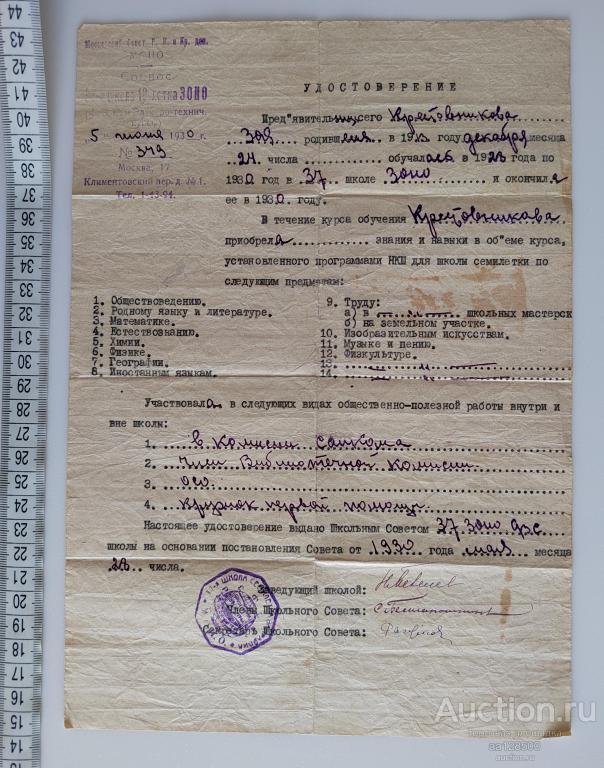 Московский Совет Р. К. и Кр. деп.
МОНО
Соцвос
ЗОНО
5 июня 1930 г.
№ 379
Москва, 17
Климентовский пер. д. №1.
Тел. 1-43-94.
УДОСТОВЕРЕНИЕ
Пред"явительницего Крестовникова
Зоя родившаяся в 1913 году декабря месяца
24. числа обучалась в 1923 года по
1930 год в 37. школе Зоно и окончила
ее в 1930. году.
В течение курса обучения Крестовникова
приобрела знания и навыки в об"еме курса,
установленного программами НКП для школы семилетки по
следующим предметам:
1. Обществоведению.
2. Родному языку и литературе.
3. Математике.
4. Естествознанию.
5. Химии.
6. Физике.
7. Географии.
8. Иностанным языкам.
9. Труду:
а) в школьных мастерск
б) на земельном участке.
10. Изобразительным искусствам.
11. Музыке и пению.
12. Физкультуре.
13.
14.
Участвовала в следующих видах общественно-полезной работы внутри и
вне школы:
1. В комисии санкома
2. Член Библиотечной комисии
3. осо
4. Кружок первой помощи
Настоящее удостоверение выдано Школьным Советом 37 Зоно ф.з.с.
школы на основании постановления Совета от 1930 года мая месяца
28 числа.
Заведующий школой:
Члены Школьного Совета:
Секретарь Школьного Совета:
44
43
42
41
40
39
38
37
36
35
34
33
32
31
30
29
28
27
26
25
24
23
22
21
20
19
18
17
16
15
14
Auction.ru
aa128500
auction.ru